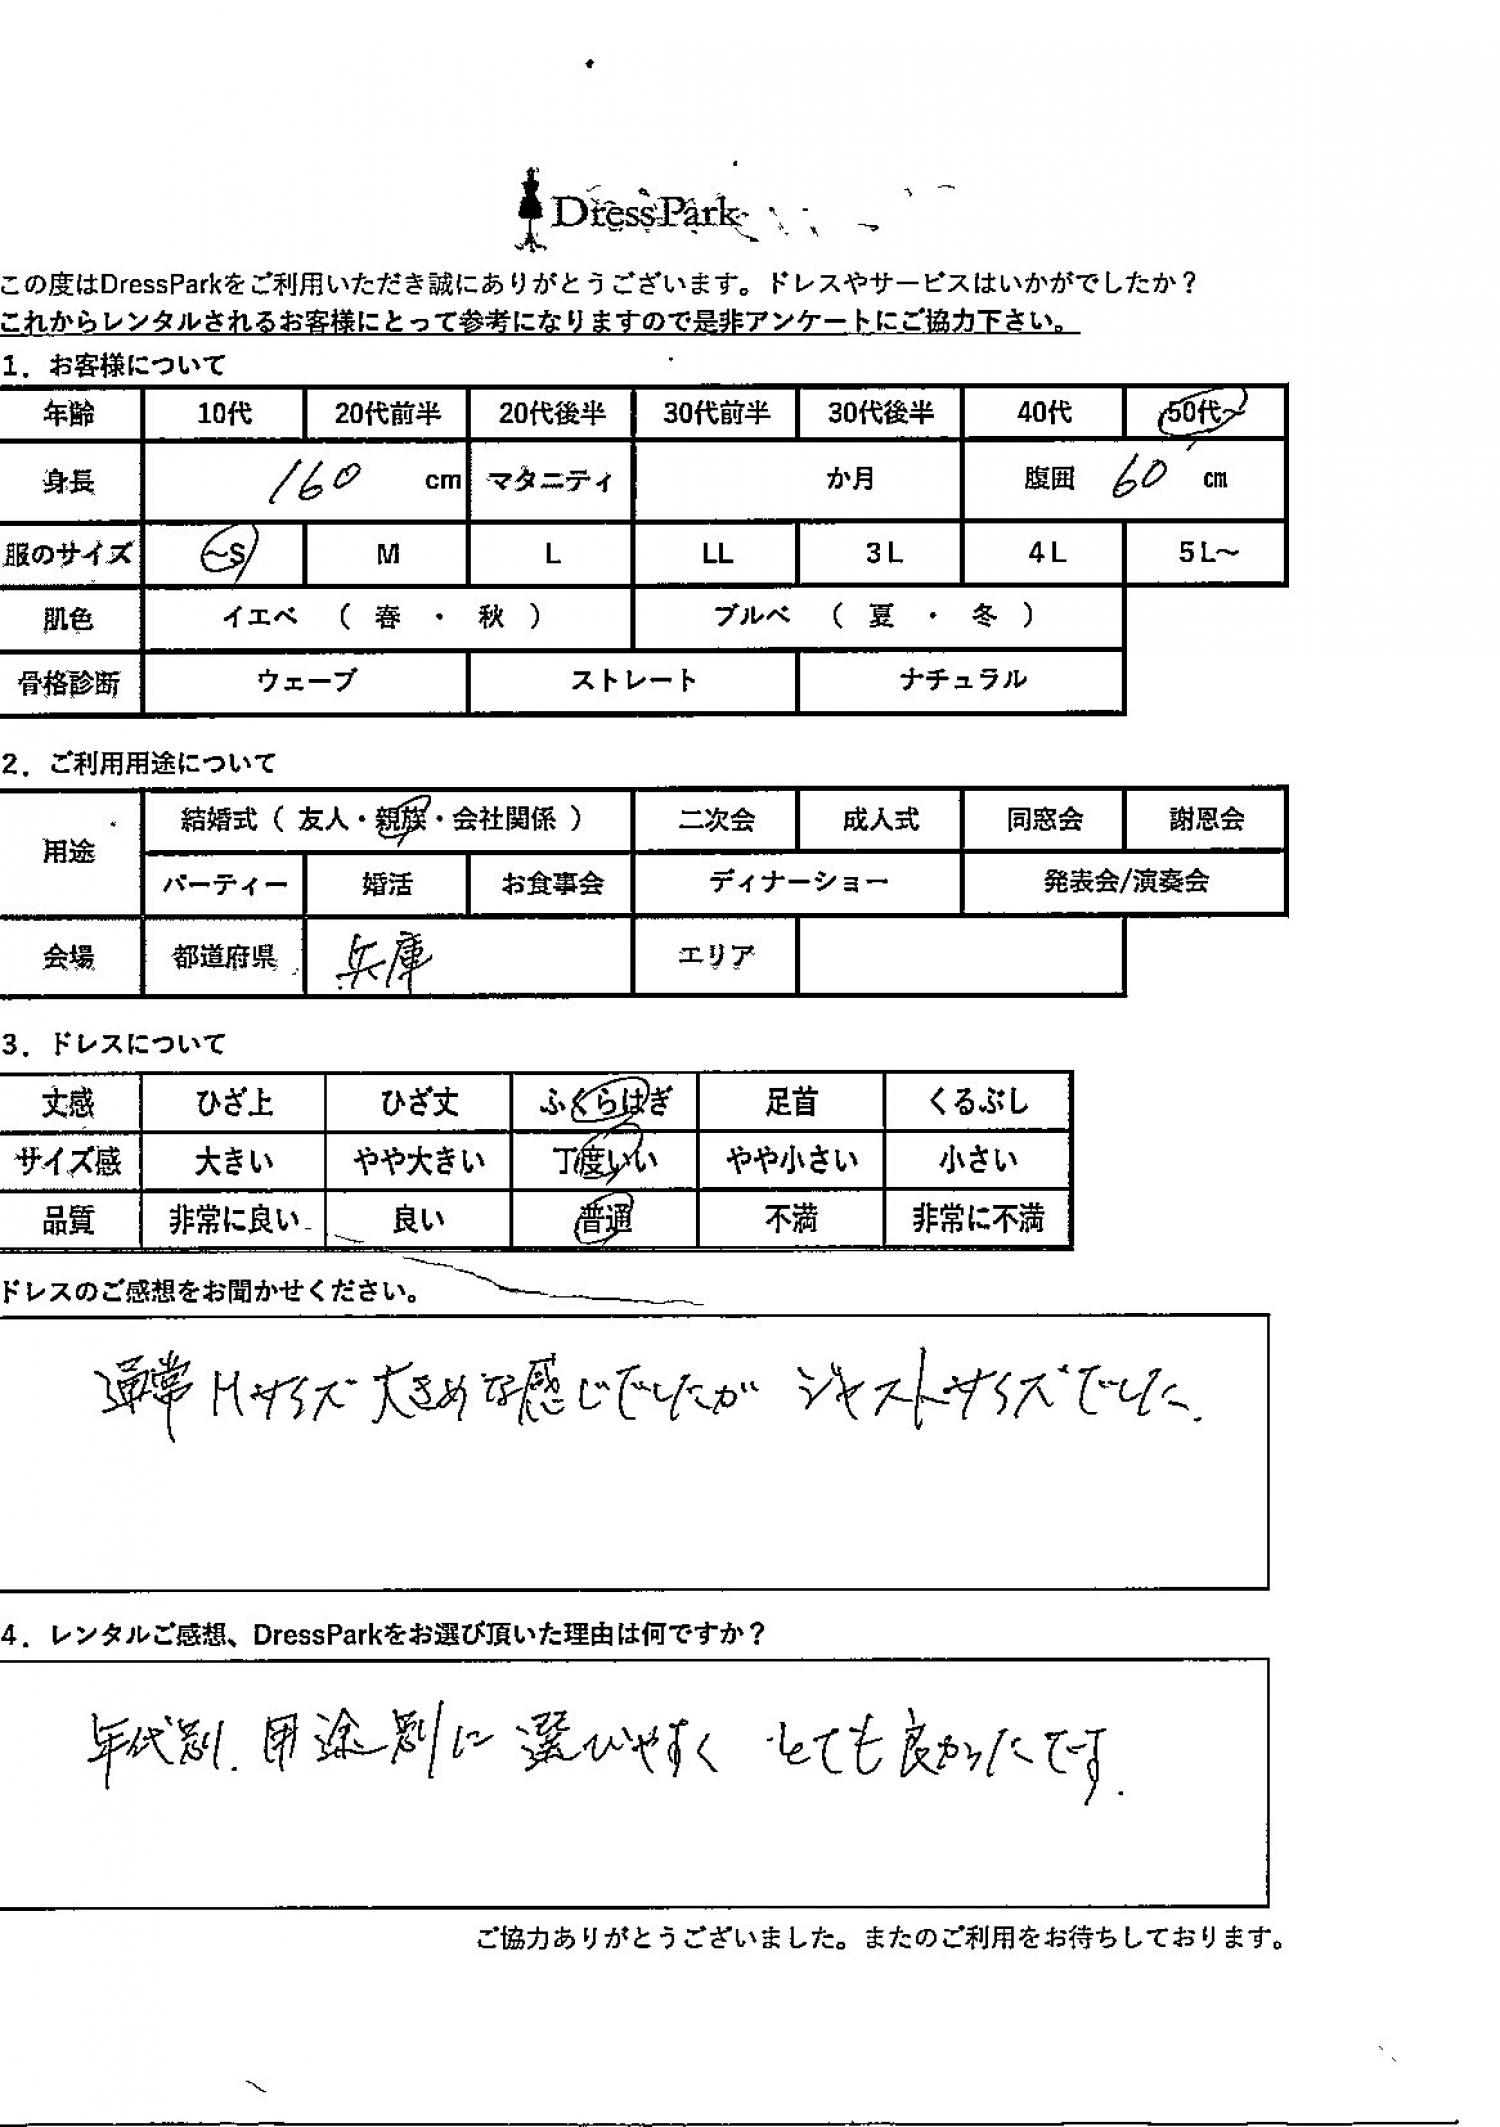 DressPark
この度はDressParkをご利用いただき誠にありがとうございます。ドレスやサービスはいかがでしたか？
これからレンタルされるお客様にとって参考になりますので是非アンケートにご協力下さい。
1．お客様について
年齢 10代 20代前半 20代後半 30代前半 30代後半 40代 50代～
身長 160 cm マタニティ か月 腹囲 60 cm
服のサイズ ～S M L LL 3L 4L 5L～
肌色 イエベ （ 春 ・ 秋 ） ブルベ （ 夏 ・ 冬 ）
骨格診断 ウェーブ ストレート ナチュラル
2．ご利用用途について
用途 結婚式（ 友人・親族・会社関係 ） 二次会 成人式 同窓会 謝恩会
パーティー 婚活 お食事会 ディナーショー 発表会/演奏会
会場 都道府県 兵庫 エリア
3．ドレスについて
丈感 ひざ上 ひざ丈 ふくらはぎ 足首 くるぶし
サイズ感 大きい やや大きい 丁度いい やや小さい 小さい
品質 非常に良い 良い 普通 不満 非常に不満
ドレスのご感想をお聞かせください。
通常Mサイズ大きめな感じでしたが ジャストサイズでした.
4．レンタルご感想、DressParkをお選び頂いた理由は何ですか？
年代別.用途別に選びやすく とても良かったです.
ご協力ありがとうございました。またのご利用をお待ちしております。